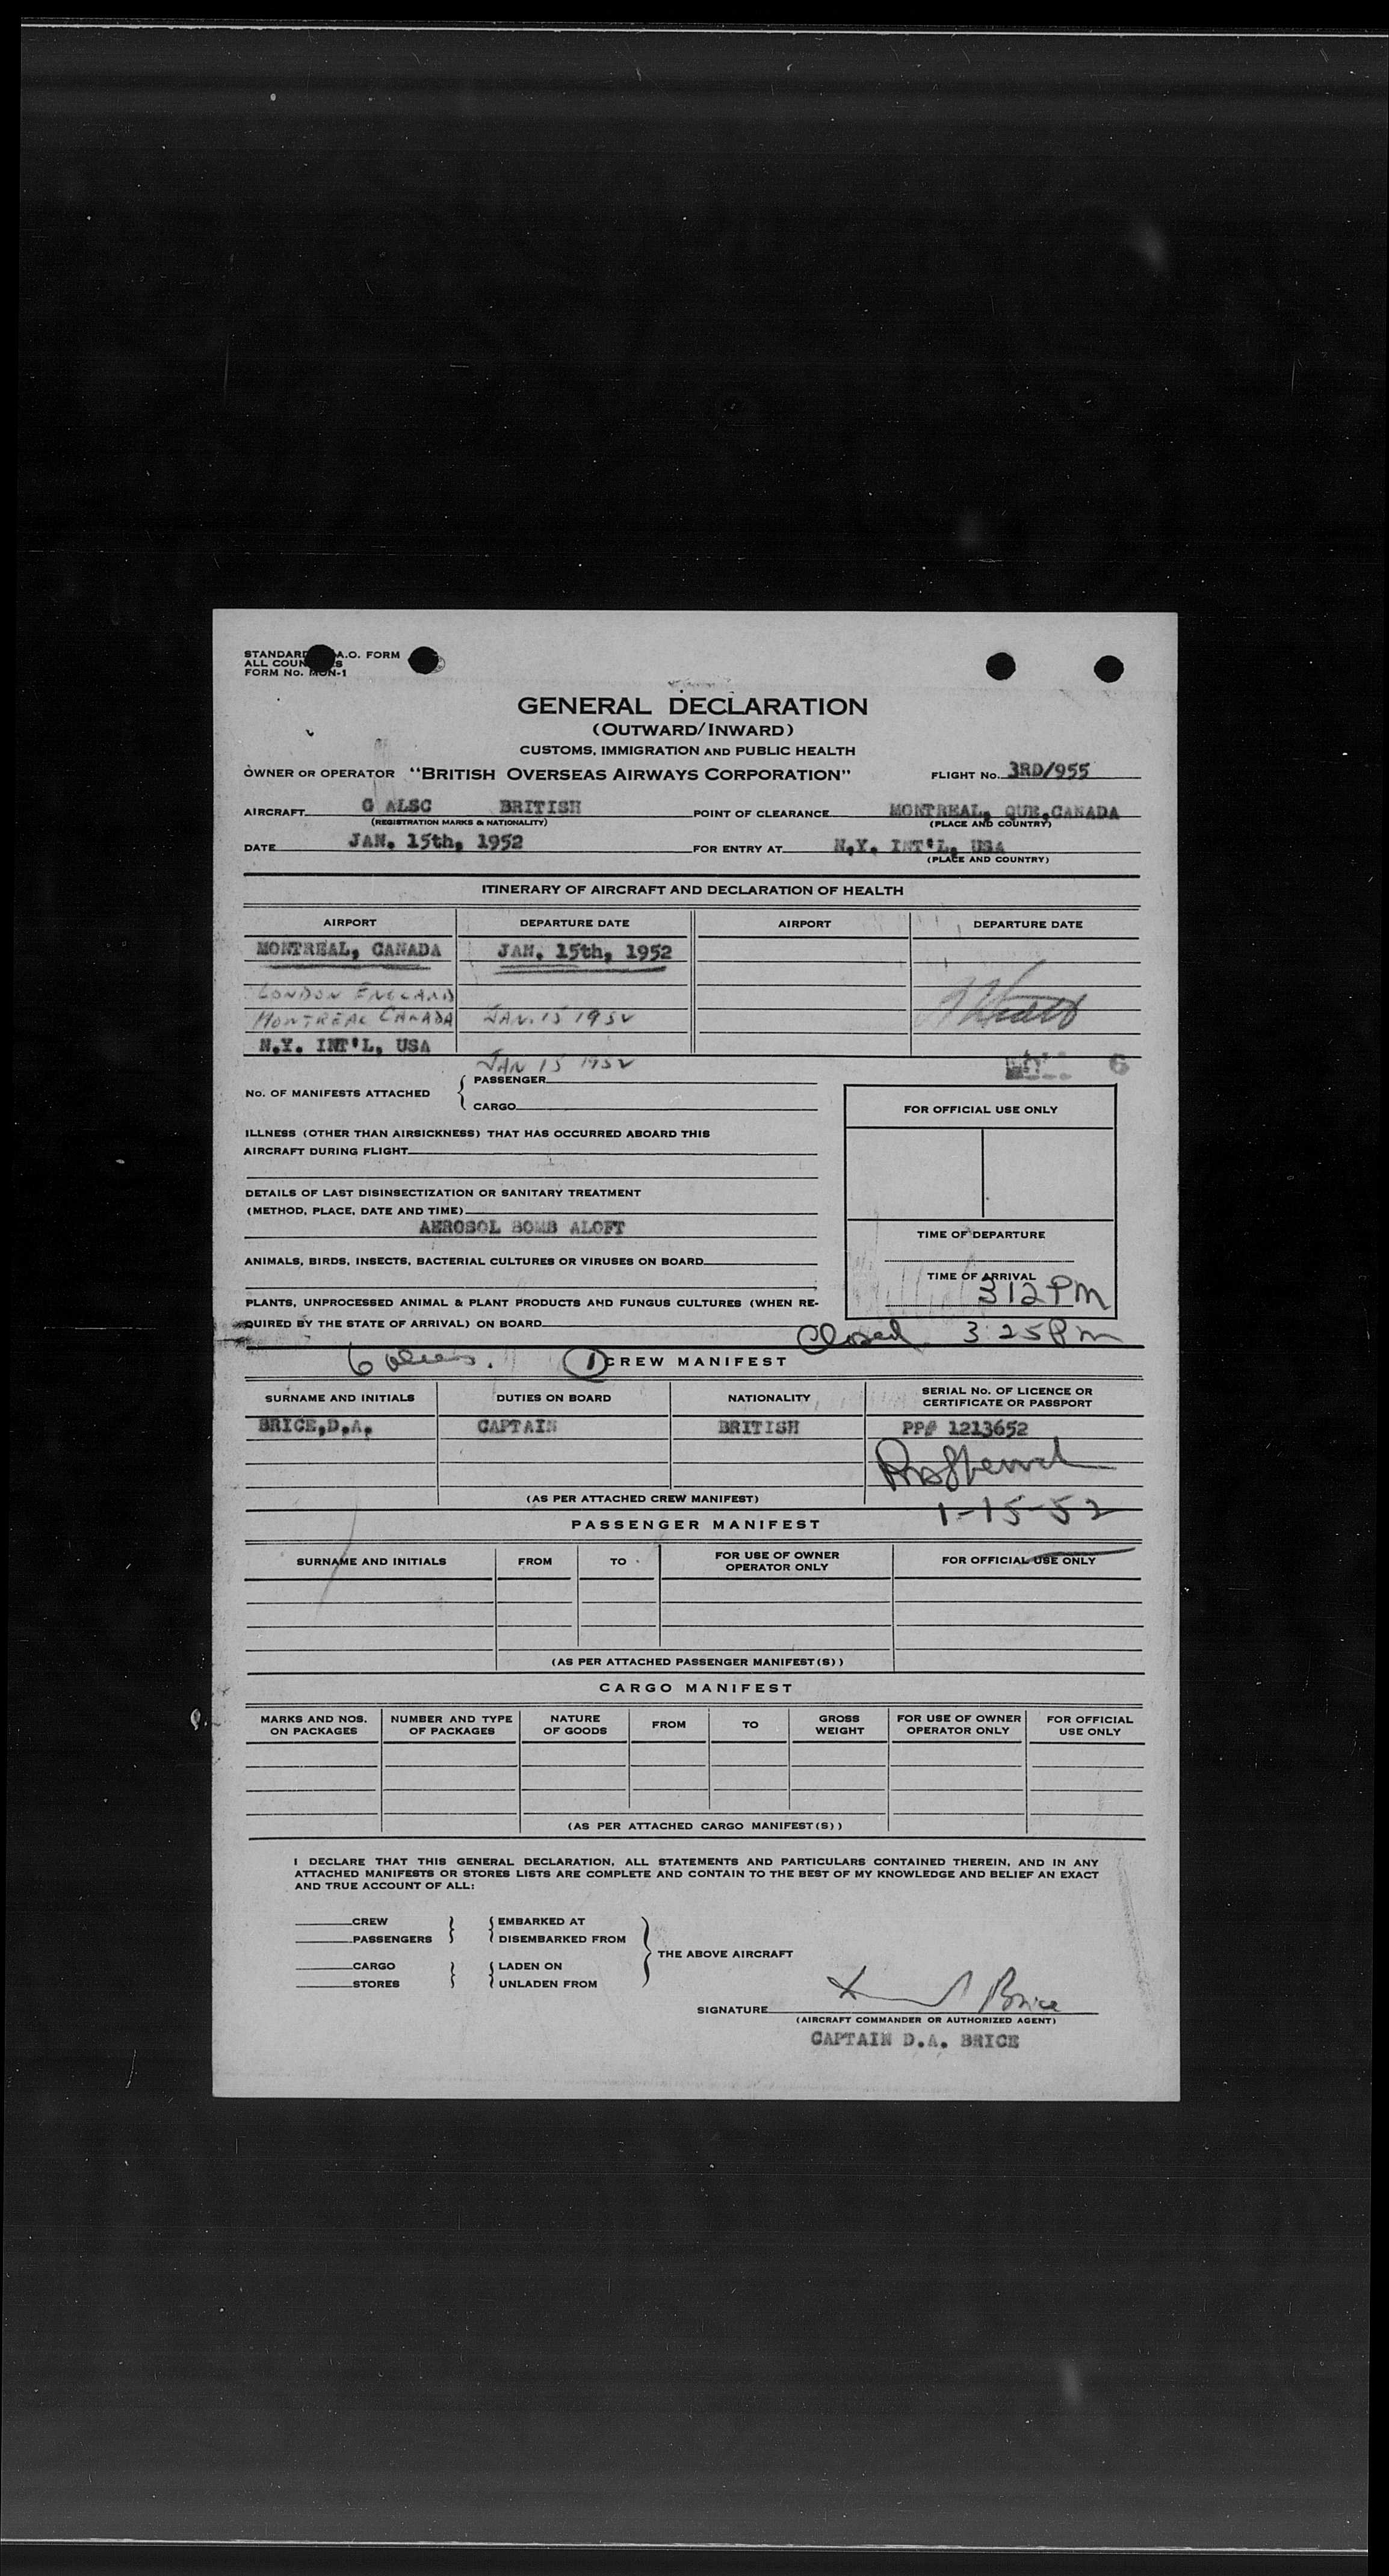 STANDARD A.O. FORM
ALL COUN S
FORM No. MON-1
GENERAL DECLARATION
(OUTWARD/INWARD)
CUSTOMS, IMMIGRATION AND PUBLIC HEALTH
OWNER OR OPERATOR "BRITISH OVERSEAS AIRWAYS CORPORATION" FLIGHT No. 3RD/955
AIRCRAFT G ALSC BRITISH POINT OF CLEARANCE MONTREAL, QUE,CANADA
(REGISTRATION MARKS & NATIONALITY) (PLACE AND COUNTRY)
DATE JAN. 15th, 1952 FOR ENTRY AT N.Y. INT'L, USA
(PLACE AND COUNTRY)
ITINERARY OF AIRCRAFT AND DECLARATION OF HEALTH
AIRPORT DEPARTURE DATE AIRPORT DEPARTURE DATE
MONTREAL, CANADA JAN. 15th, 1952
LONDON ENGLAND
MONTREAL CANADA JAN. 15 1952
N.Y. INT'L, USA
JAN 15 1952
No. OF MANIFESTS ATTACHED { PASSENGER
CARGO
FOR OFFICIAL USE ONLY
ILLNESS (OTHER THAN AIRSICKNESS) THAT HAS OCCURRED ABOARD THIS
AIRCRAFT DURING FLIGHT
DETAILS OF LAST DISINSECTIZATION OR SANITARY TREATMENT
(METHOD, PLACE, DATE AND TIME)
AEROSOL BOMB ALOFT
TIME OF DEPARTURE
ANIMALS, BIRDS, INSECTS, BACTERIAL CULTURES OR VIRUSES ON BOARD
TIME OF ARRIVAL
312 PM
PLANTS, UNPROCESSED ANIMAL & PLANT PRODUCTS AND FUNGUS CULTURES (WHEN RE-
QUIRED BY THE STATE OF ARRIVAL) ON BOARD
Closed 3 25 Pm
6 aliens. 1 CREW MANIFEST
SURNAME AND INITIALS DUTIES ON BOARD NATIONALITY SERIAL No. OF LICENCE OR
CERTIFICATE OR PASSPORT
BRICE,D.A, CAPTAIN BRITISH PP# 1213652
(AS PER ATTACHED CREW MANIFEST)
1-15-52
PASSENGER MANIFEST
SURNAME AND INITIALS FROM TO FOR USE OF OWNER
OPERATOR ONLY FOR OFFICIAL USE ONLY
(AS PER ATTACHED PASSENGER MANIFEST(S))
CARGO MANIFEST
MARKS AND NOS.
ON PACKAGES NUMBER AND TYPE
OF PACKAGES NATURE
OF GOODS FROM TO GROSS
WEIGHT FOR USE OF OWNER
OPERATOR ONLY FOR OFFICIAL
USE ONLY
(AS PER ATTACHED CARGO MANIFEST(S))
I DECLARE THAT THIS GENERAL DECLARATION, ALL STATEMENTS AND PARTICULARS CONTAINED THEREIN, AND IN ANY
ATTACHED MANIFESTS OR STORES LISTS ARE COMPLETE AND CONTAIN TO THE BEST OF MY KNOWLEDGE AND BELIEF AN EXACT
AND TRUE ACCOUNT OF ALL:
CREW } { EMBARKED AT
PASSENGERS } { DISEMBARKED FROM
THE ABOVE AIRCRAFT
CARGO } { LADEN ON
STORES } { UNLADEN FROM
SIGNATURE Brice
(AIRCRAFT COMMANDER OR AUTHORIZED AGENT)
CAPTAIN D.A. BRICE